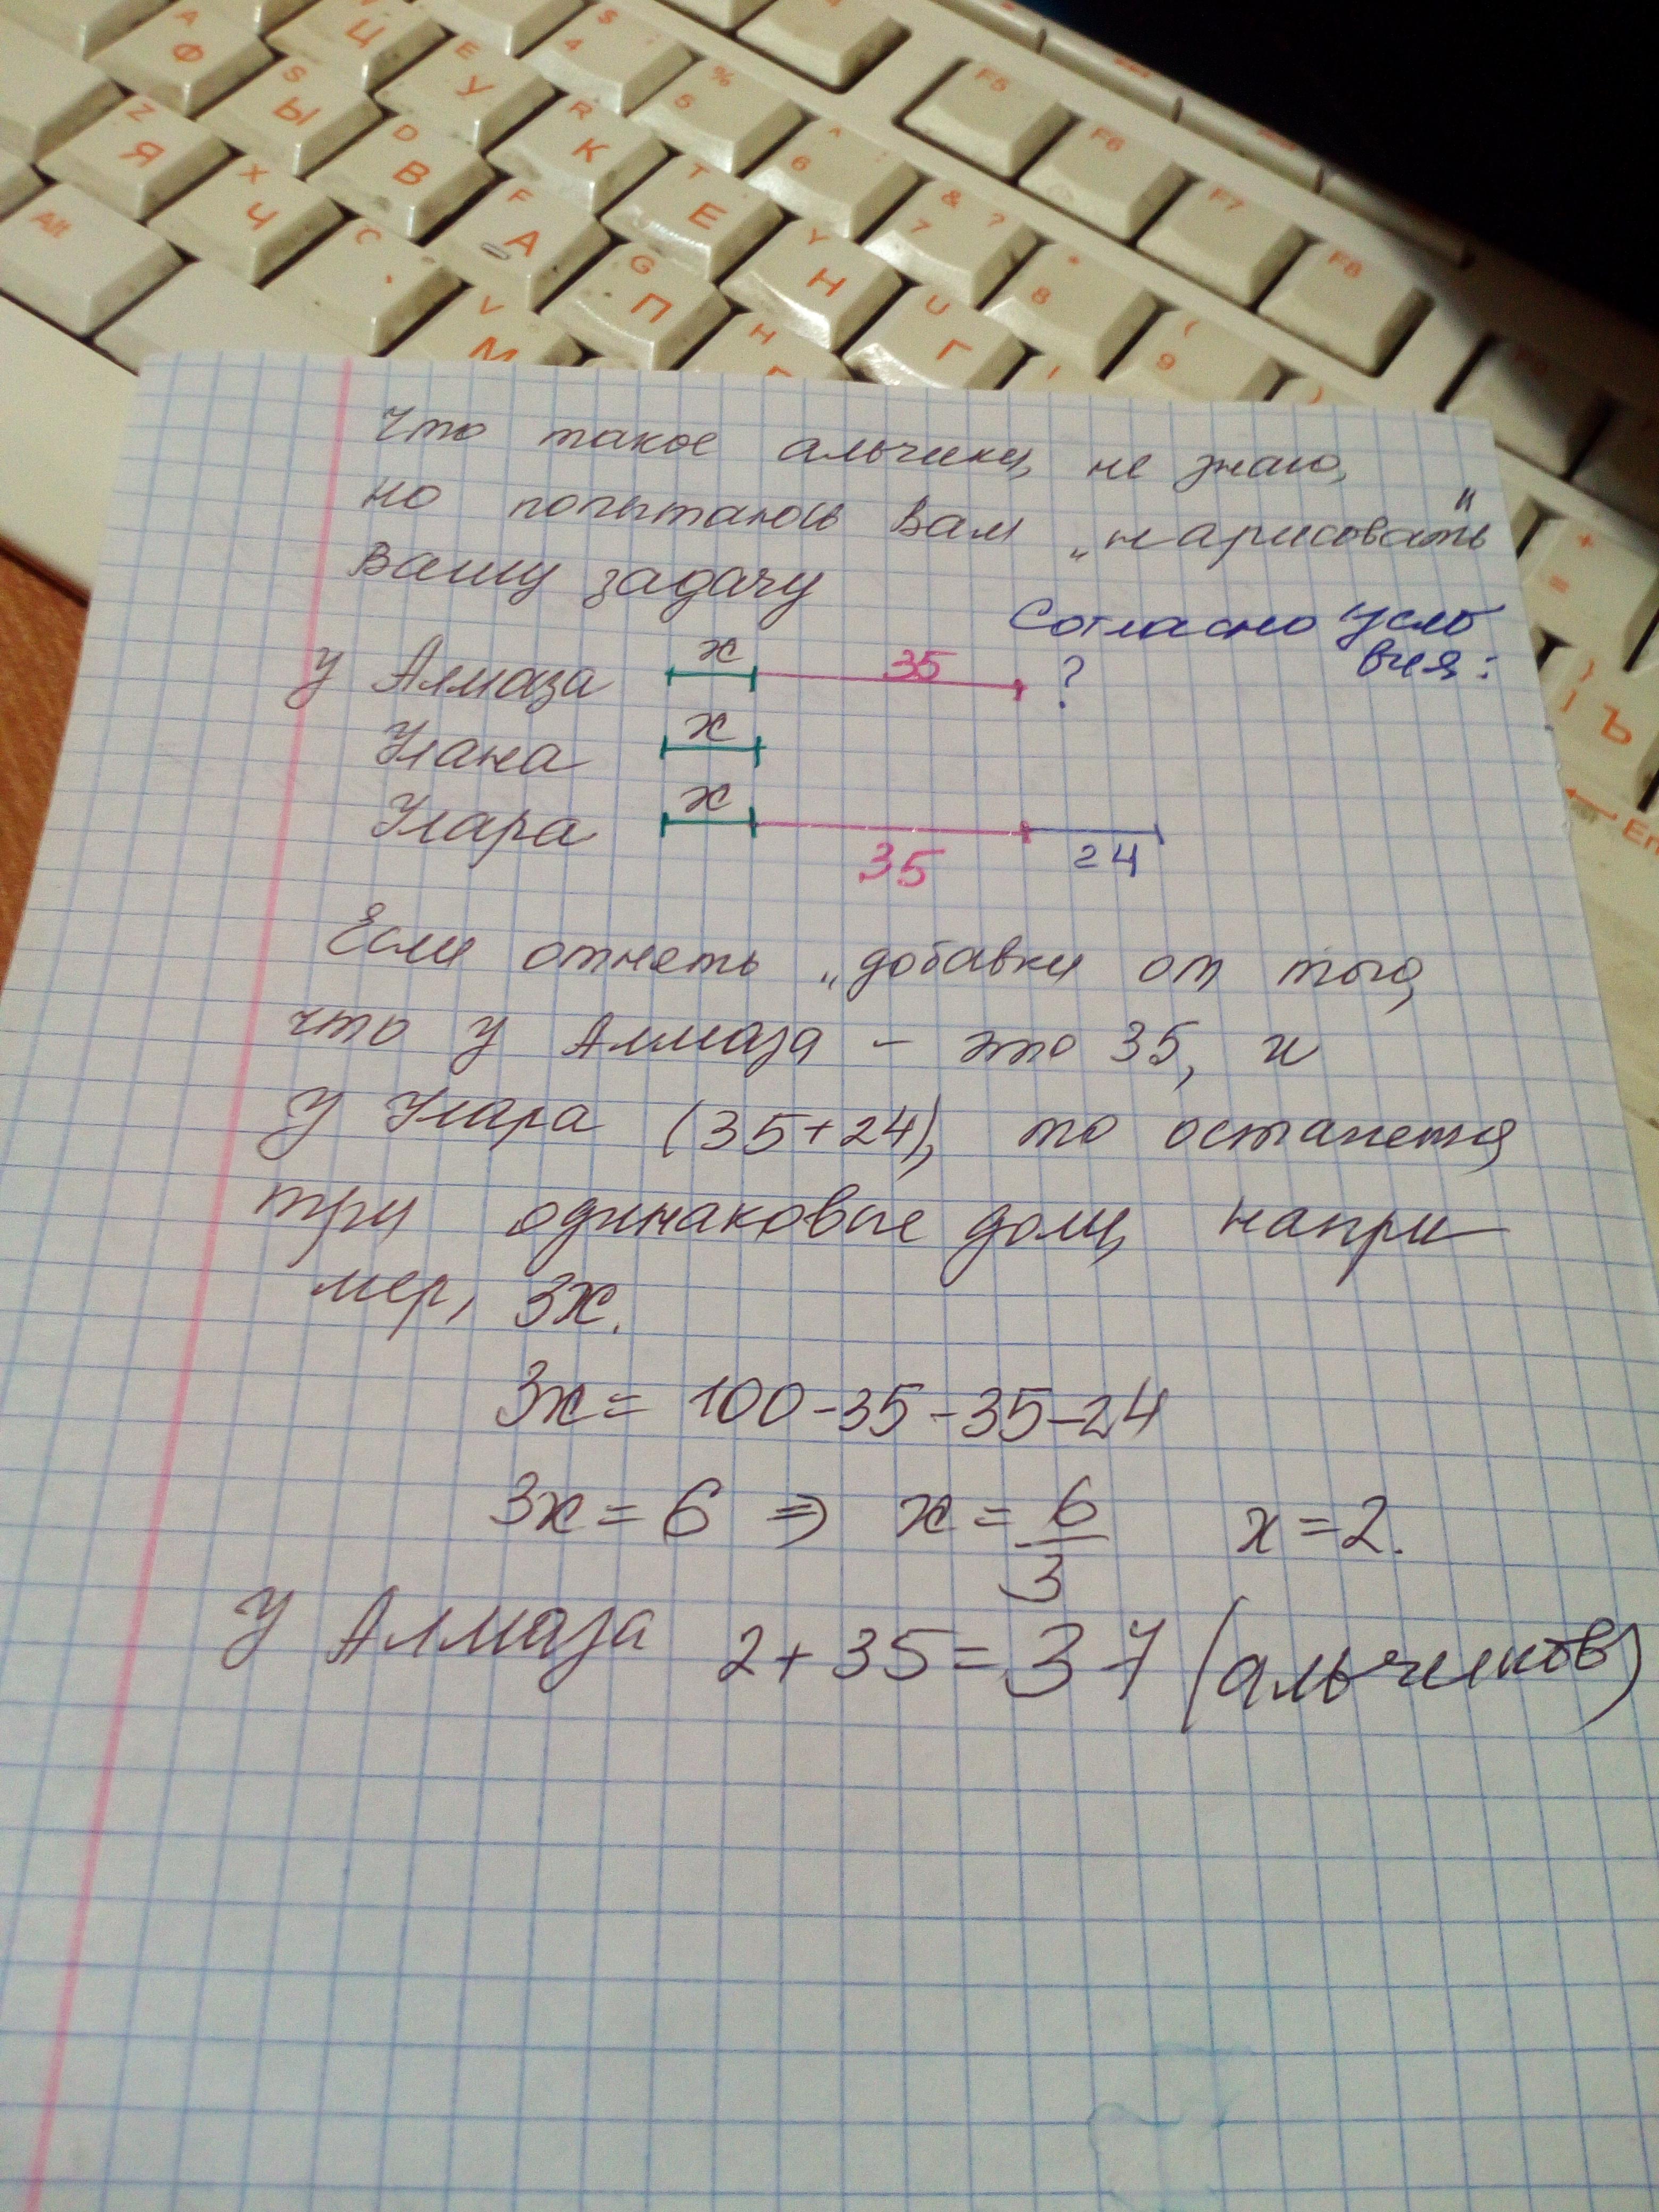 Что такое альчики, не знаю,
но попытаюсь Вам „нарисовать"
Вашу задачу
Согласно усло
вия:
У Алмаза x 35 ?
Улана x
Улара x 35 24
Если отнять „добавки от того,
что у Алмаза – это 35, и
У Улара (35+24), то останется
три одинаковые доли, напри
мер, 3x.
3x = 100-35-35-24
3x = 6 ⇒ x = 6/3 x = 2.
У Алмаза 2+35=37 (альчиков)